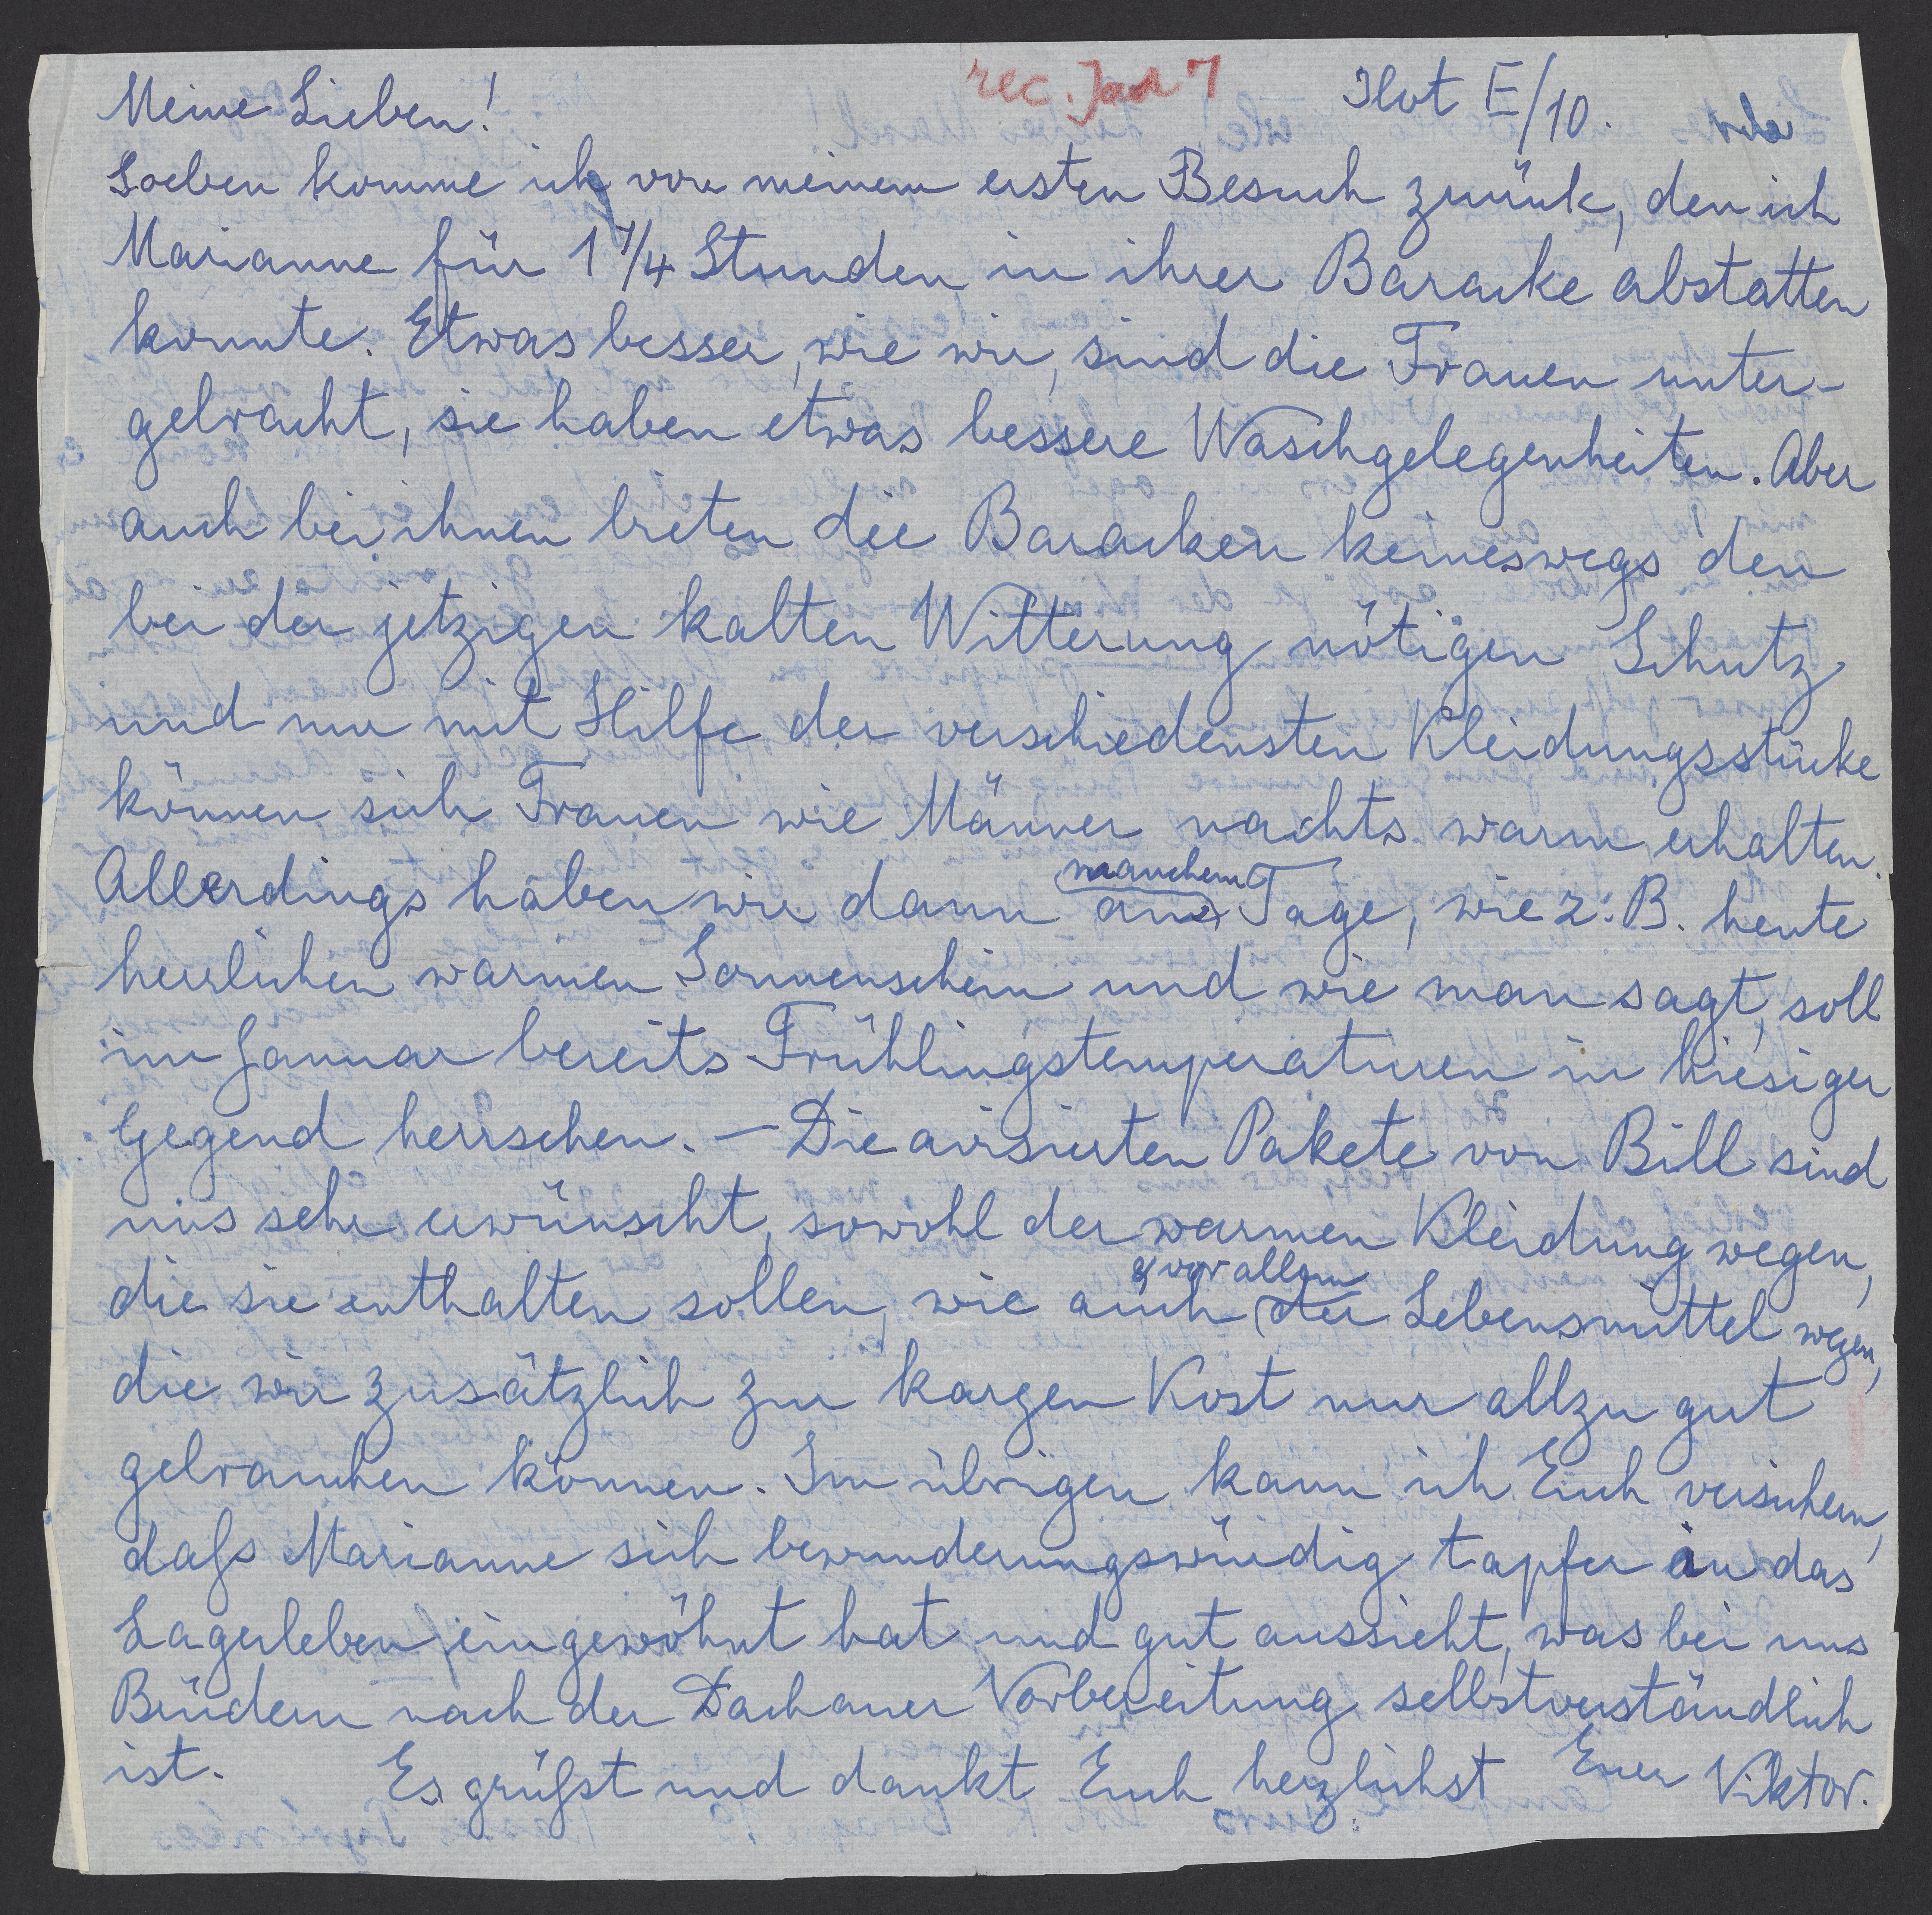 rec. Jan 7
Ilot E/10.
Meine Lieben!
Soeben komme ich von meinem ersten Besuch zurück, den ich
Marianne für 1 1/4 Stunden in ihrer Baracke abstatten
konnte. Etwas besser, wie wir, sind die Frauen unter-
gebracht, sie haben etwas bessere Waschgelegenheiten. Aber
auch bei ihnen bieten die Baracken keineswegs den
bei der jetzigen kalten Witterung nötigen Schutz
und nur mit Hilfe der verschiedensten Kleidungsstücke
können sich Frauen wie Männer nachts warm erhalten.
Allerdings haben wir dann an manchem Tage, wie z. B. heute
herrlichen warmen Sonnenschein und wie man sagt, soll
im Januar bereits Frühlingstemperaturen in hiesiger
Gegend herrschen. — Die avisierten Pakete von Bill sind
uns sehr erwünscht, sowohl der warmen Kleidung wegen,
die sie enthalten sollen, wie auch & vor allem der Lebensmittel wegen,
die wir zusätzlich zur kargen Kost nur allzu gut
gebrauchen können. Im übrigen kann ich Euch versichern,
dass Marianne sich bewunderungswürdig tapfer in das
Lagerleben eingewöhnt hat und gut aussieht, was bei uns
Brüdern nach der Dachauer Vorbereitung selbstverständlich
ist. Es grüsst und dankt Euch herzlichst Euer Viktor.